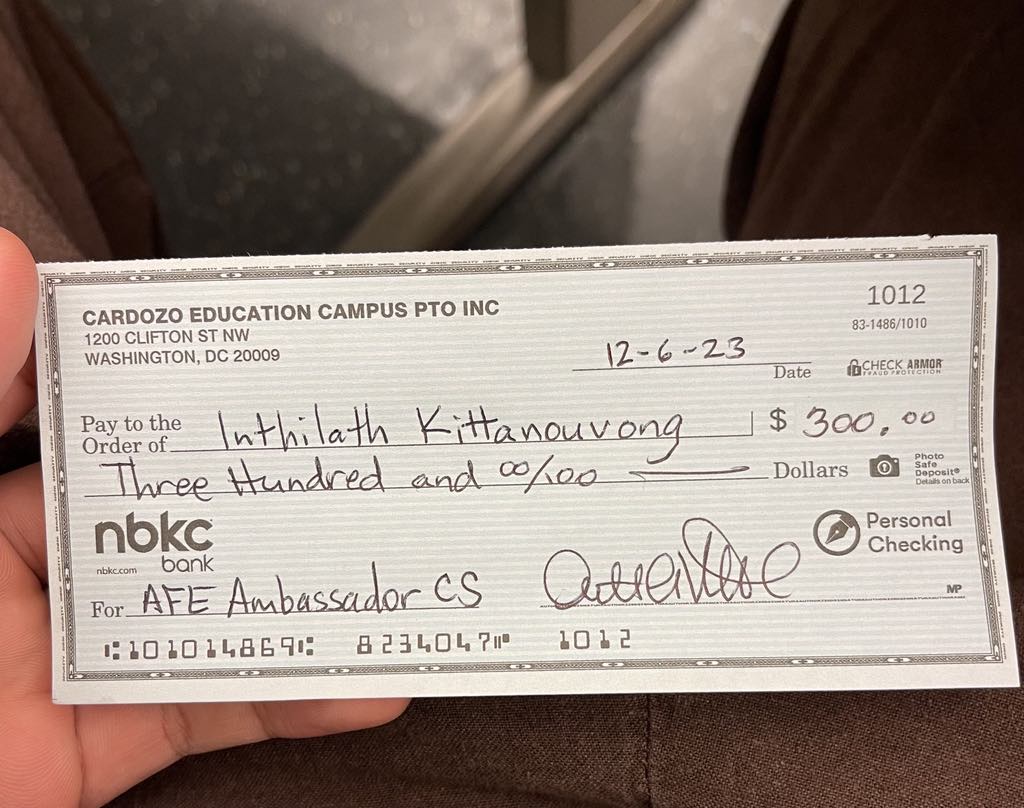 CARDOZO EDUCATION CAMPUS PTO INC
1200 CLIFTON ST NW
WASHINGTON, DC 20009
1012
83-1486/1010
12-6-23
Date
CHECK ARMOR
FRAUD PROTECTION
Pay to the
Order of
Inthilath Kittanouvong
$ 300.00
Three Hundred and 00/100
Dollars
Photo
Safe
Deposit®
Details on back
nbkc
bank
nbkc.com
Personal
Checking
For AFE Ambassador CS
MP
⑆101014869⑆ 8234047⑈ 1012